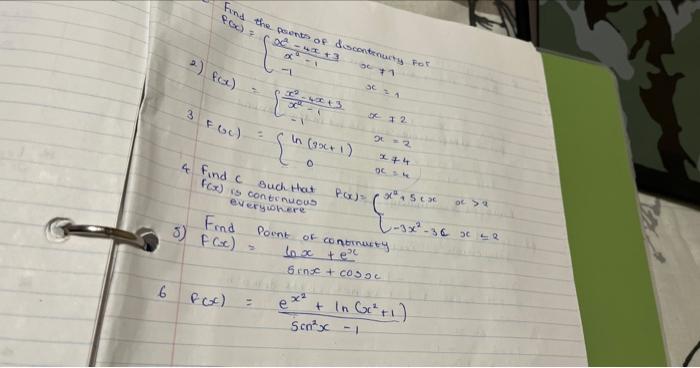 Find the points of discontinuity for
f(x) = { x² - 4x + 3 / x² - 1   x ≠ 1
-1   x = 1
2) f(x) = { x² - 4x + 3 / x² - 1   x ≠ 2
-1   x = 2
3 f(x) = { ln (3x + 1)   x ≠ 4
0   x = 4
4 Find c such that f(x) = { x² + 5cx   x > 2
f(x) is continuous
everywhere   -3x² - 3c   x ≤ 2
5) Find Point of continuity
f(x) = ln x + e^x / sinx + cosx
6 f(x) = e^x² + ln (x² + 1) / sin²x - 1